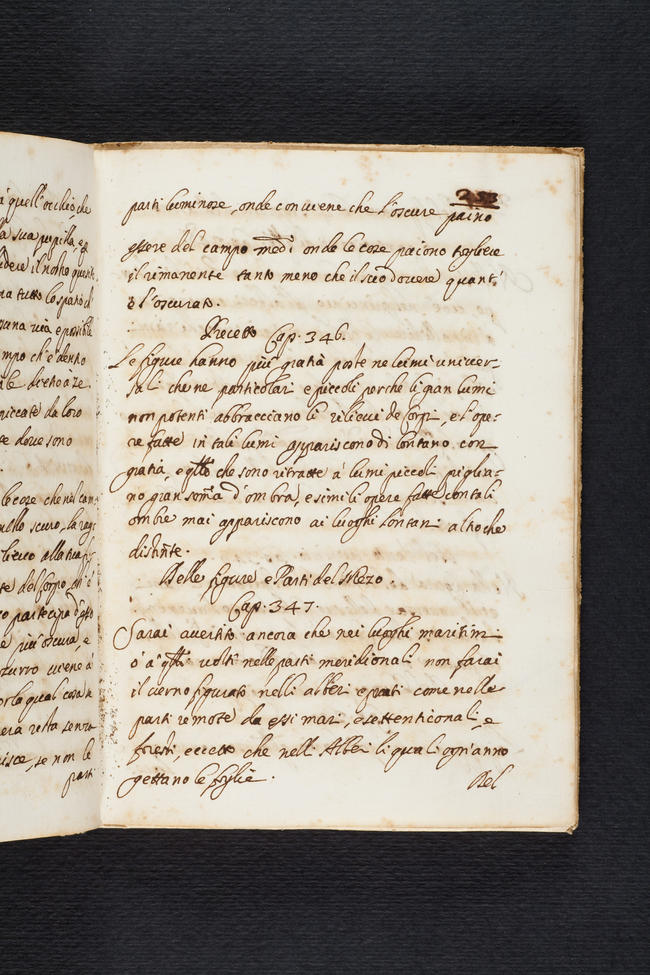 à quell'occhio, che
la sua pupilla, e
vedere il nostro
ma tutto lo spatio d
sana via e possibile
mpo ch'è dento
dietro à ze
piccate da loro
e dove sono
le coze che nel cam
scuro, la rag
te del Corpo, ch'è
partecipa
e più oscura, e
zurro viene à
la qual cosa
resta senza
isce, se non le
parti
parti luminose, onde conviene che l'oscure paino
essere del campo medº. onde le coze paiono togliere
il rimanente tanto meno che il suo dovere quant'
è l'oscurato.
Precetto Cap. 346.
Le figure hanno più gratia poste ne lumi univer-
sali che ne particolari e piccoli perche li gran lumi
non potenti abbracciano li rilievi de Corpi, e l'ope-
re fatte in tali lumi appariscono di lontano con
gratia, e qlle che sono ritratte a' lumi piccoli piglia-
no gran soma d'ombra, e simili opere fatte con tali
ombre mai appariscono ai luoghi lontani altro che
distinte.
Delle figure e Parti del Mezo.
Cap. 347.
Sarai avertito ancora che nei luoghi maritimi
o' a' qlli volti nelle parti meridionali non farai
il verno figurato nelli alberi e prati come nelle
parti remote da essi mari, e settentrionali, e
foresti, eccetto che nelli Alberi li quali ogn'anno
gettano le foglie.
Del